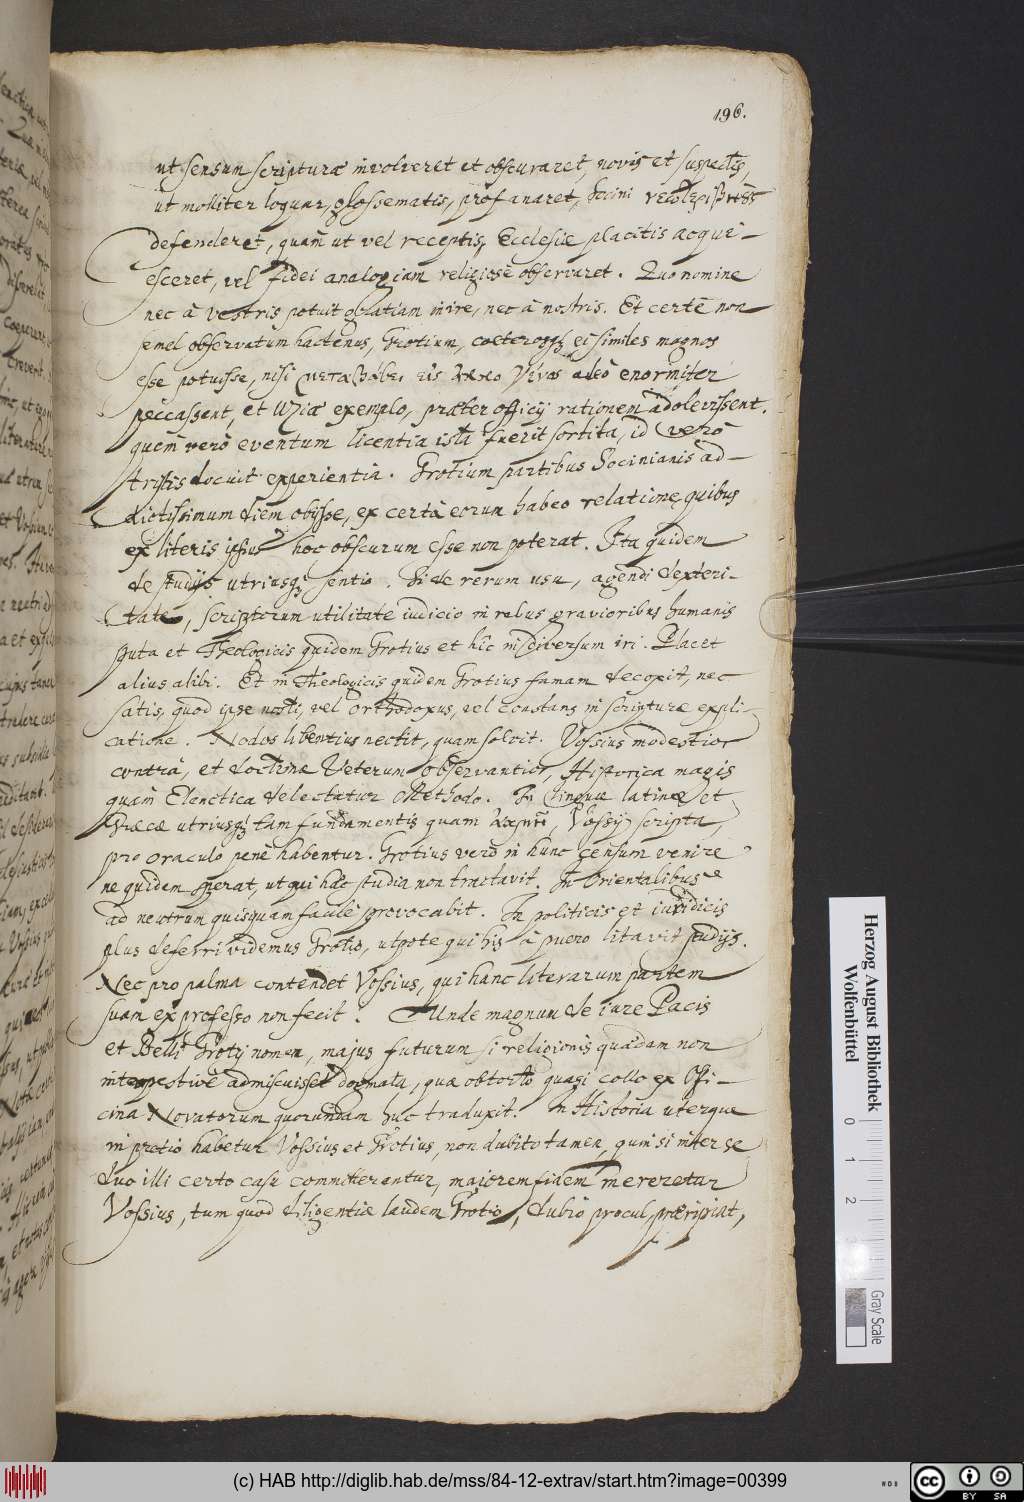 196.
ut sensum scripturæ involveret et obscuraret, novis et suspectis,
ut molliter loquar, glossematis, profanaret, Socini
defenderet, quàm ut vel receptis Ecclesiæ placitis acqui-
esceret, vel fidei analogiam religiosè observaret. Quo nomine
nec à vestris potuit gratiam inire, nec à nostris. Et certè non
semel observatum hactenus, Grotium, cæterosq; ei similes magnos
esse potuisse, nisi εἰς ἄλλο γένος adeò enormiter
peccassent, et Uziæ exemplo, præter officij rationem adolevissent.
quem verò eventum licentia ista fuerit sortita, id verò
tristis docuit experientia. Grotium partibus Socinianis ad-
dictissimum diem obijsse, ex certa eorum habeo relatione, quibus
ex literis ipsius hoc obscurum esse non poterat. Ita quidem
de studijs utriusq; sentio. Si de rerum usu, agendi dexteri-
tate, scriptorum utilitate iudicio in rebus gravioribus humanis
puta et Theologicis quidem Grotius et hic in diversum iri. Placet
alius alibi. Et in Theologicis quidem Grotius famam decoxit, nec
satis, quod ipse nosti, vel orthodoxus, vel constans in scripturæ expli-
catione. Nodos libentius nectit, quam solvit. Vossius modestior
contrà, et doctrinæ Veterum observantior, Historica magis
quàm Elenctica delectatur Methodo. In Linguæ latinæ et
Græcæ utriusq; tam fundamentis quam Vossij scripta,
pro oraculo penè habentur. Grotius verò in hunc censum venire
ne quidem sperat, ut qui hæc studia non tractavit. In Orientalibus
ad neutrum quisquam facilè provocabit. In politicis et iuridicis
plus deferri videmus Grotio, utpote qui his à puero litavit studijs.
Nec pro palma contendet Vossius, qui hanc literarum partem
suam ex professo non fecit. Unde magnum de iure Pacis
et Belli Grotij nomen, majus futurum si religionis quædam non
intempestivè admiscuisset dogmata, quæ obtorto quasi collo ex Offi-
cina Novatorum quorundam huc traduxit. In Historia uterque
in pretio habetur Vossius et Grotius, non dubito tamen, quin si inter se
duo illi certo casu committerentur, majorem fidem mereretur
Vossius, tum quod diligentiæ laudem Grotio, dubio procul, præripiat,
Herzog August Bibliothek
Wolfenbüttel
0 1 2 3
Gray Scale
(c) HAB http://diglib.hab.de/mss/84-12-extrav/start.htm?image=00399
cc BY SA